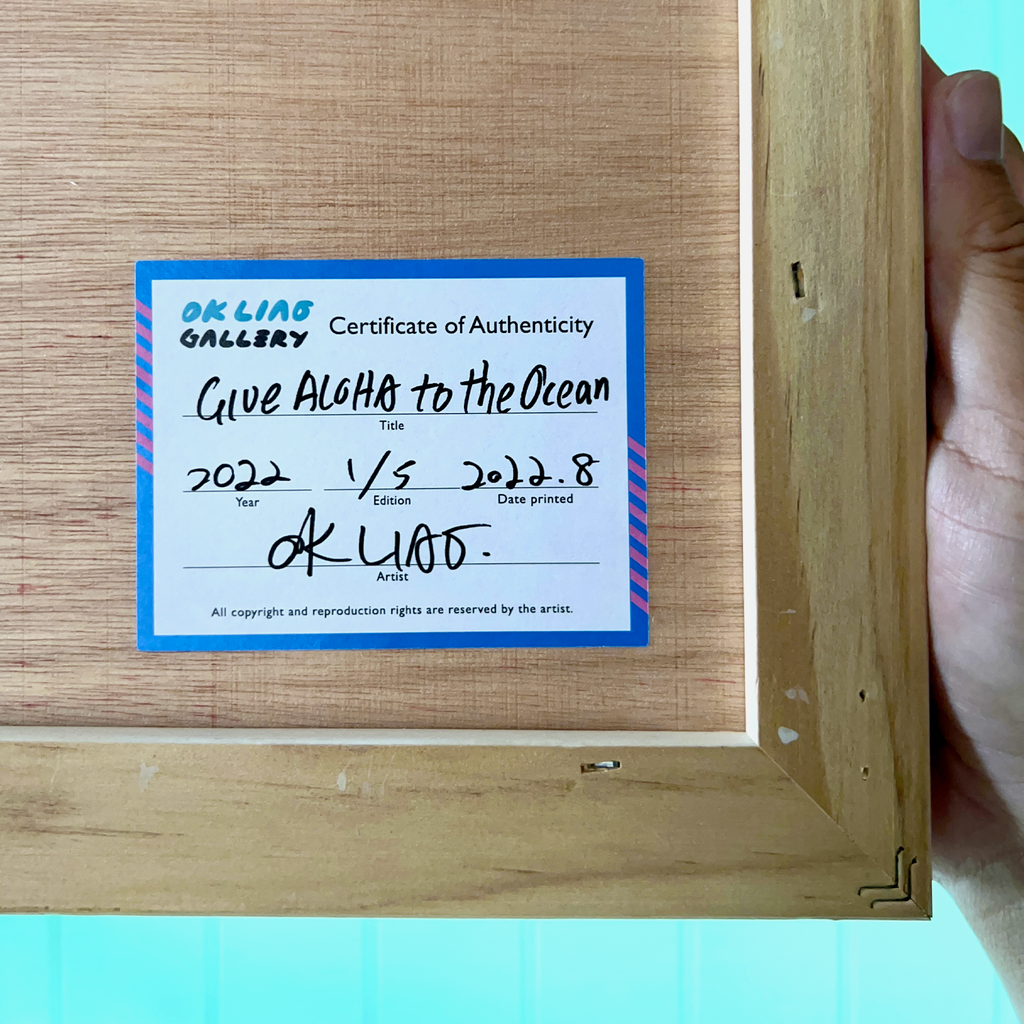 OK LIAO
GALLERY
Certificate of Authenticity
Give ALOHA to the Ocean
Title
2022 1/5 2022.8
Year Edition Date printed
OK LIAO.
Artist
All copyright and reproduction rights are reserved by the artist.